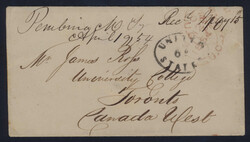 Pembina M. T.
April 1854
UNITED
6
STATES
Mr James Ross
University College
Toronto
Canada West